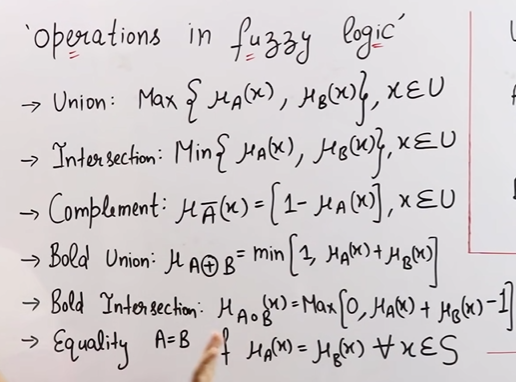 'operations in fuzzy logic'
→ Union: Max { μ_A(x) , μ_B(x)}, x∈U
→ Intersection: Min{ μ_A(x), μ_B(x)}, x∈U
→ Complement: μ_Ā(x) = [1 - μ_A(x)], x∈U
→ Bold Union: μ_A⊕B = min[1, μ_A(x) + μ_B(x)]
→ Bold Intersection: μ_A∘B(x) = Max[0, μ_A(x) + μ_B(x) - 1]
→ Equality A=B μ_A(x) = μ_B(x) ∀ x∈S